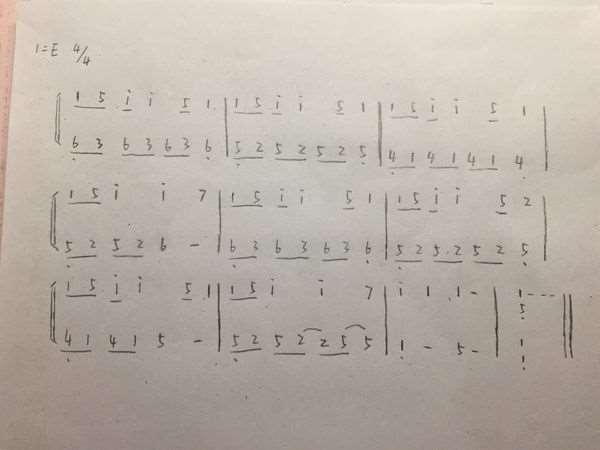 1=E 4/4
1 5 i i 5 1 | 1 5 i i 5 1 | 1 5 i i 5 1 |
6 3 6 3 6 3 6 | 5 2 5 2 5 2 5 | 4 1 4 1 4 1 4 |
1 5 i i 7 | 1 5 i i 5 1 | 1 5 i i 5 2 |
5 2 5 2 6 - | 6 3 6 3 6 3 6 | 5 2 5 2 5 2 5 |
1 5 i i 5 1 | 1 5 i i 7 | i 1 1 - | 1 - - - ||
4 1 4 1 5 - | 5 2 5 2 2 5 5 | 1 - 5 - | 5 1 ||